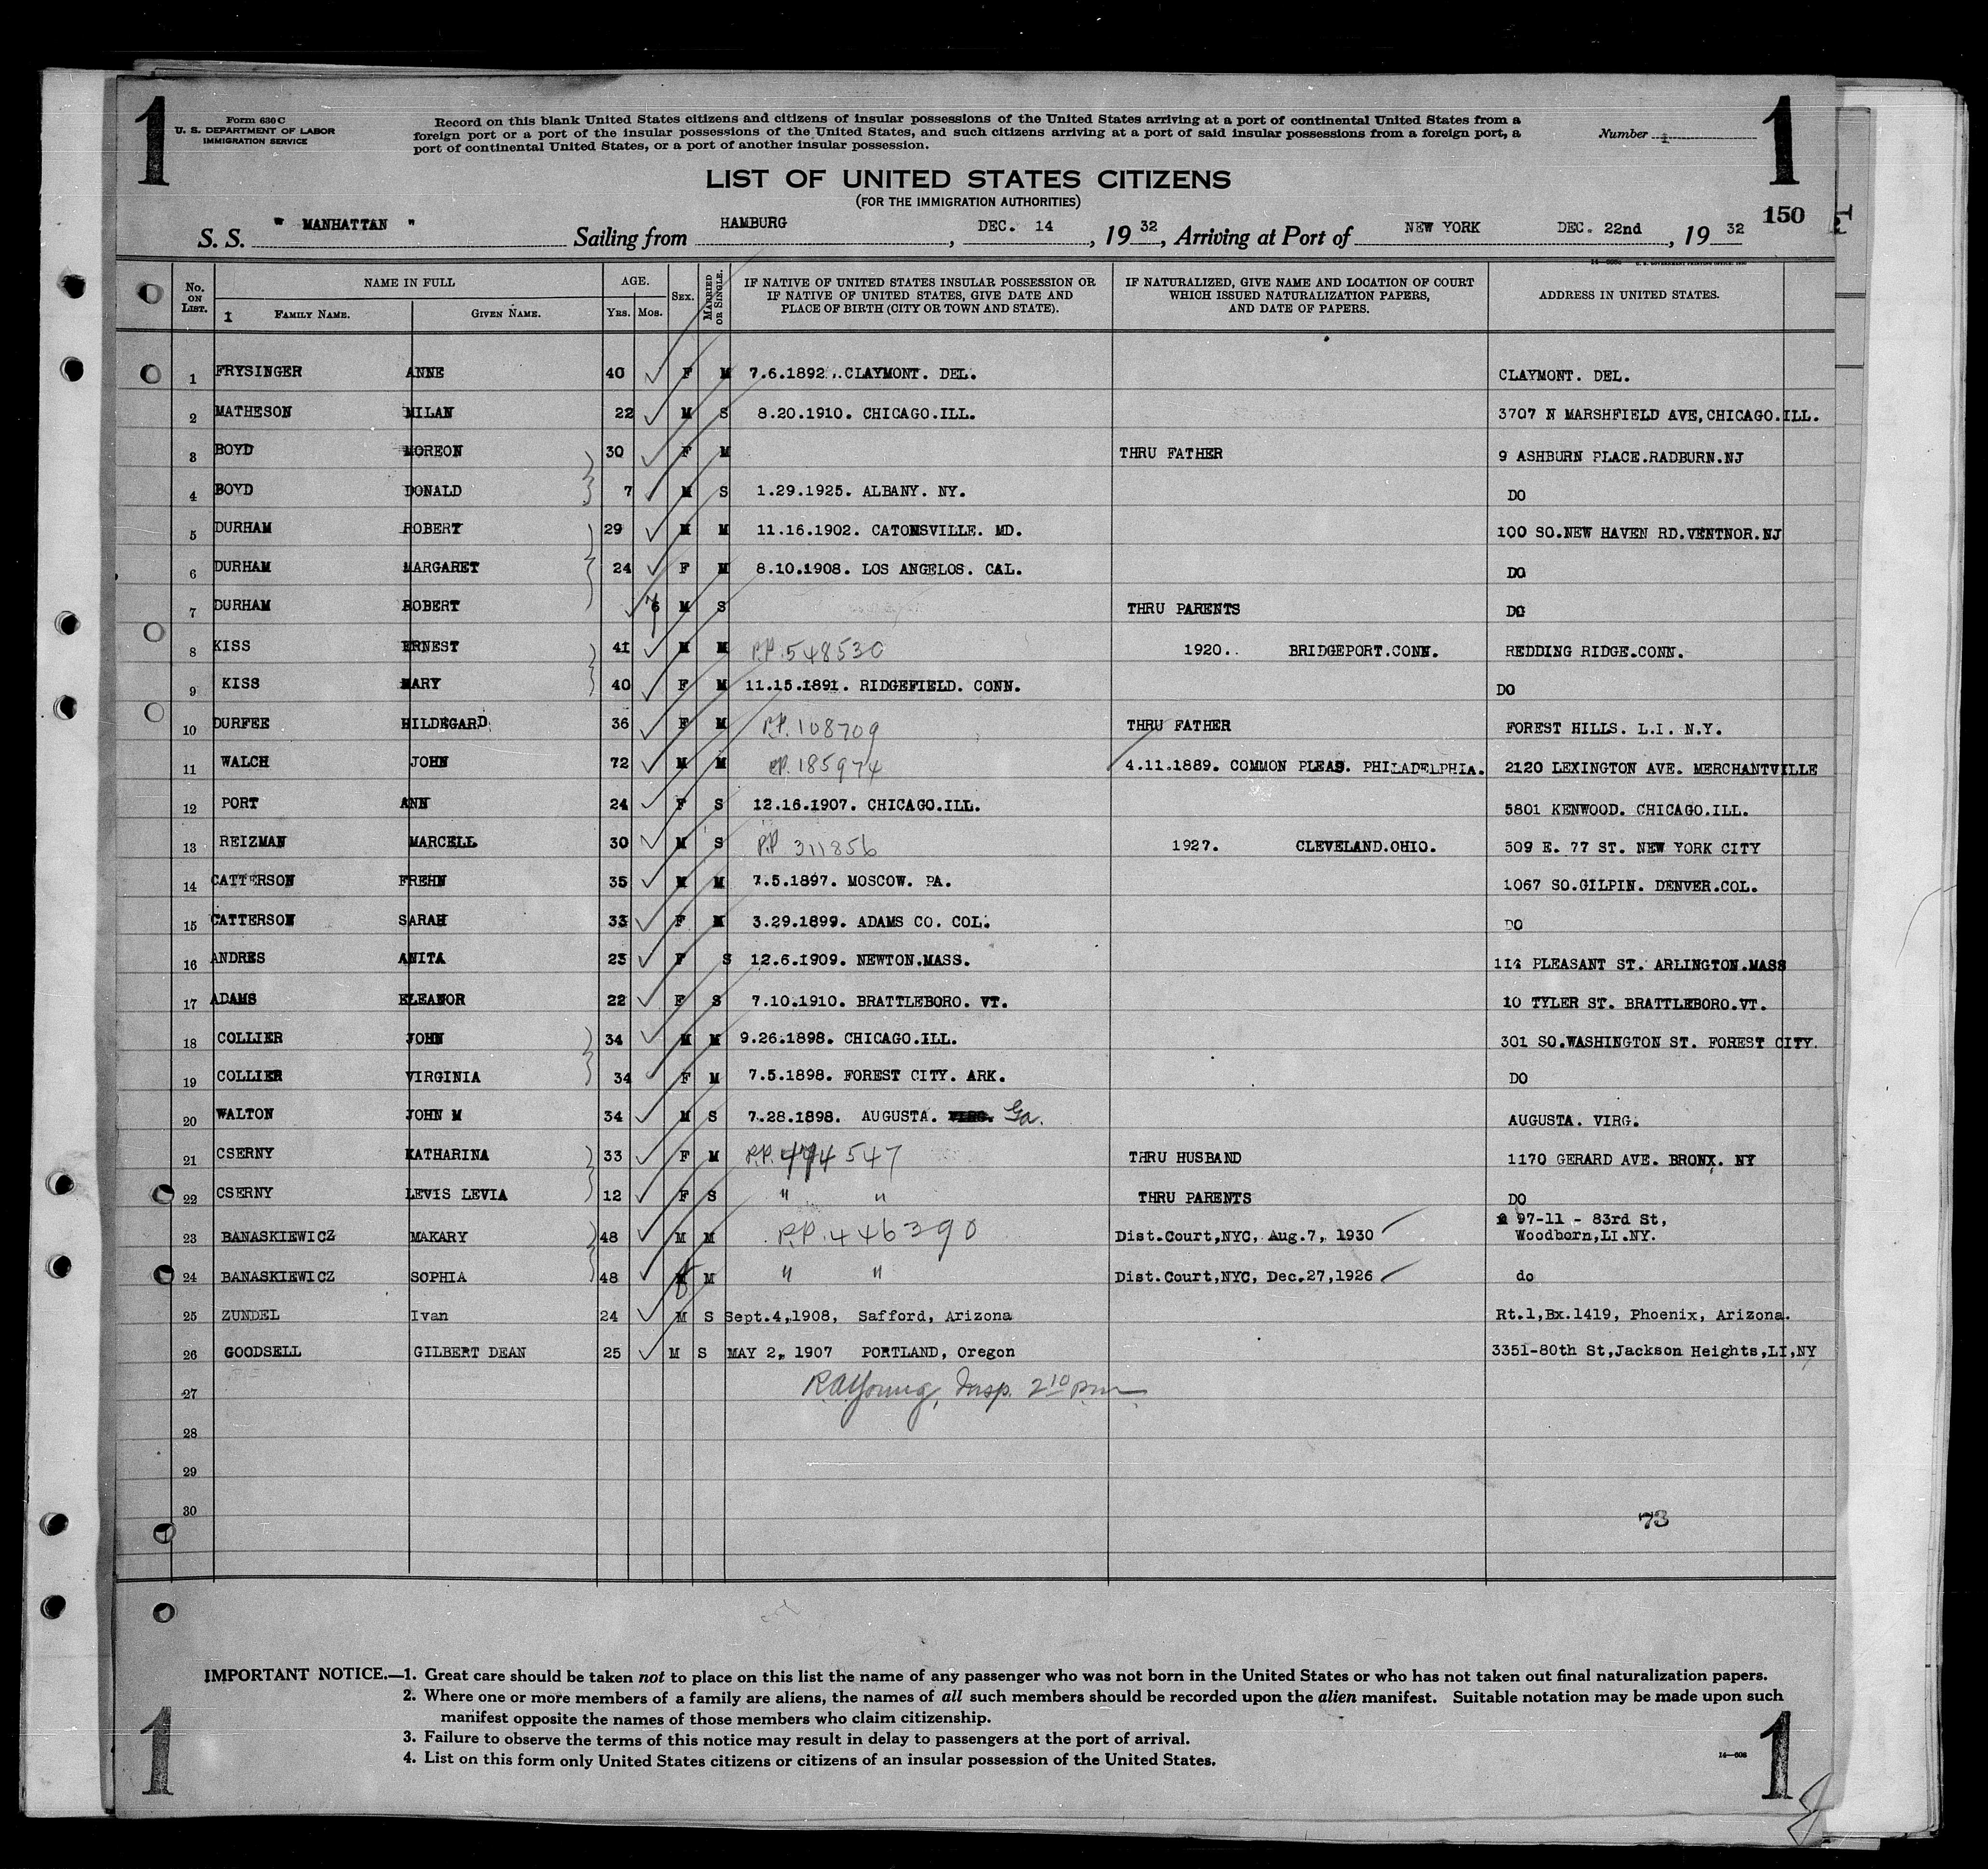 1
Form 630 C
U. S. DEPARTMENT OF LABOR
IMMIGRATION SERVICE
Record on this blank United States citizens and citizens of insular possessions of the United States arriving at a port of continental United States from a
foreign port or a port of the insular possessions of the United States, and such citizens arriving at a port of said insular possessions from a foreign port, a
port of continental United States, or a port of another insular possession.
Number 1
1
LIST OF UNITED STATES CITIZENS
(FOR THE IMMIGRATION AUTHORITIES)
150
S. S. " MANHATTAN " Sailing from HAMBURG, DEC. 14, 19 32, Arriving at Port of NEW YORK DEC. 22nd, 19 32
No. ON LIST. NAME IN FULL AGE. SEX. MARRIED OR SINGLE. IF NATIVE OF UNITED STATES INSULAR POSSESSION OR IF NATIVE OF UNITED STATES, GIVE DATE AND PLACE OF BIRTH (CITY OR TOWN AND STATE). IF NATURALIZED, GIVE NAME AND LOCATION OF COURT WHICH ISSUED NATURALIZATION PAPERS, AND DATE OF PAPERS. ADDRESS IN UNITED STATES.
1 FAMILY NAME. GIVEN NAME. YRS. MOS.
1 FRYSINGER ANNE 40 F M 7.6.1892. CLAYMONT. DEL. CLAYMONT. DEL.
2 MATHESON MILAN 22 M S 8.20.1910. CHICAGO.ILL. 3707 N MARSHFIELD AVE,CHICAGO.ILL.
3 BOYD MOREON 30 F M THRU FATHER 9 ASHBURN PLACE.RADBURN.NJ
4 BOYD DONALD 7 M S 1.29.1925. ALBANY. NY. DO
5 DURHAM ROBERT 29 M M 11.16.1902. CATONSVILLE. MD. 100 SO.NEW HAVEN RD.VENTNOR.NJ
6 DURHAM MARGARET 24 F M 8.10.1908. LOS ANGELOS. CAL. DO
7 DURHAM ROBERT M S THRU PARENTS DO
8 KISS ERNEST 41 M M P.P. 548530 1920.. BRIDGEPORT.CONN. REDDING RIDGE.CONN.
9 KISS MARY 40 F M 11.15.1891. RIDGEFIELD. CONN. DO
10 DURFEE HILDEGARD 36 F M P.P. 108709 THRU FATHER FOREST HILLS. L.I. N.Y.
11 WALCH JOHN 72 M M P.P. 185974 4.11.1889. COMMON PLEAS. PHILADELPHIA. 2120 LEXINGTON AVE. MERCHANTVILLE
12 PORT ANN 24 F S 12.16.1907. CHICAGO.ILL. 5801 KENWOOD. CHICAGO.ILL.
13 REIZMAN MARCELL 30 M S P.P. 311856 1927. CLEVELAND.OHIO. 509 E. 77 ST. NEW YORK CITY
14 CATTERSON FREHN 35 M M 7.5.1897. MOSCOW. PA. 1067 SO.GILPIN. DENVER.COL.
15 CATTERSON SARAH 33 F M 3.29.1899. ADAMS CO. COL. DO
16 ANDRES ANITA 23 F S 12.6.1909. NEWTON.MASS. 114 PLEASANT ST. ARLINGTON.MASS
17 ADAMS ELEANOR 22 F S 7.10.1910. BRATTLEBORO. VT. 10 TYLER ST. BRATTLEBORO.VT.
18 COLLIER JOHN 34 M M 9.26.1898. CHICAGO.ILL. 301 SO.WASHINGTON ST. FOREST CITY.
19 COLLIER VIRGINIA 34 F M 7.5.1898. FOREST CITY. ARK. DO
20 WALTON JOHN M 34 M S 7.28.1898. AUGUSTA. Ga. AUGUSTA. VIRG.
21 CSERNY KATHARINA 33 F M P.P. 474547 THRU HUSBAND 1170 GERARD AVE. BRONX. NY
22 CSERNY LEVIS LEVIA 12 F S " " THRU PARENTS DO
23 BANASKIEWICZ MAKARY 48 M M P.P. 446390 Dist.Court,NYC, Aug.7, 1930 97-11 - 83rd St, Woodhorn,LI.NY.
24 BANASKIEWICZ SOPHIA 48 f M " " Dist.Court,NYC, Dec.27,1926 do
25 ZUNDEL Ivan 24 M S Sept.4,1908, Safford, Arizona Rt.1,Bx.1419, Phoenix, Arizona.
26 GOODSELL GILBERT DEAN 25 M S MAY 2, 1907 PORTLAND, Oregon 3351-80th St,Jackson Heights,LI,NY
27 R.A.Young, Insp. 2 10 p.m.
28
29
30
73
IMPORTANT NOTICE.—1. Great care should be taken not to place on this list the name of any passenger who was not born in the United States or who has not taken out final naturalization papers.
2. Where one or more members of a family are aliens, the names of all such members should be recorded upon the alien manifest. Suitable notation may be made upon such
manifest opposite the names of those members who claim citizenship.
3. Failure to observe the terms of this notice may result in delay to passengers at the port of arrival.
4. List on this form only United States citizens or citizens of an insular possession of the United States.
14—608
1
1